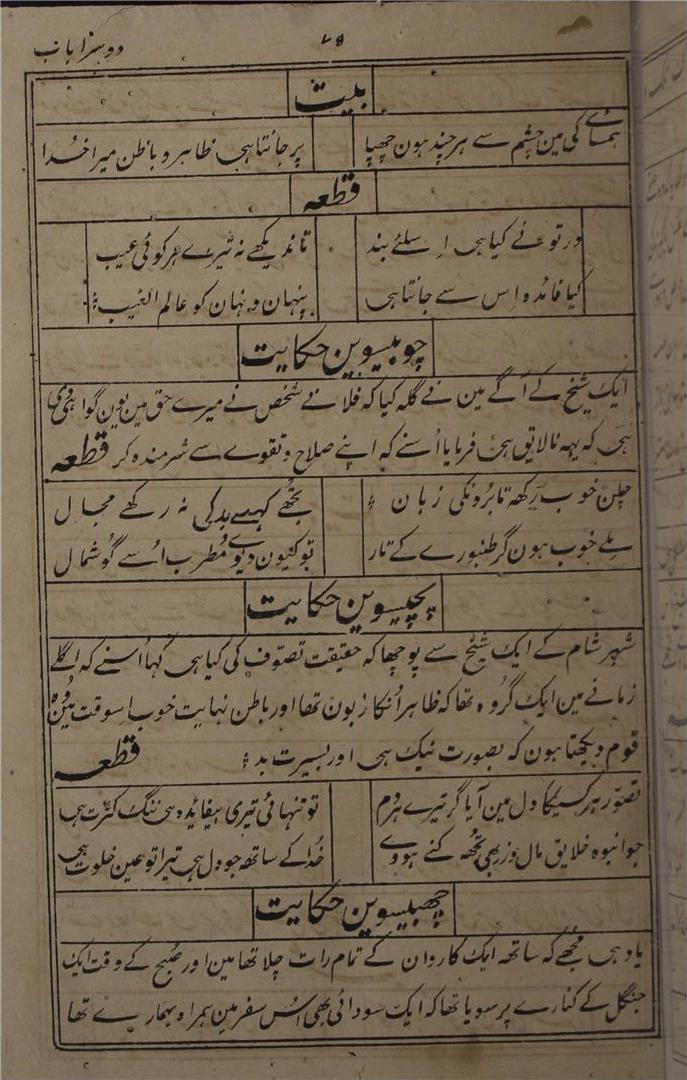 دوسرا باب
۷۵
بیت
ہمسائے کی مین چشم سے ہرچند ہون چھپا پر جانتا ہی ظاہر و باطن میرا خُدا
قطعہ
در تو نے کیا ہی اِسلئے بند تا ندیکھے نہ تیرے ہر کوئی عیب
کیا فائدہ اِس سے جانتا ہی پنہان و نہان کو عالم الغیب
چوبیسوین حکایت
ایک شیخ کے آگے مین نے گلہ کیا کہ فلانے شخص نے میرے حق مین یون گواہی دی
ہی کہ یہہ نالایق ہی فرمایا اُسنے کہ اپنے صلاح و تقوے سے شرمندہ کر قطعہ
چلن خوب رکھہ تا بُرونکی زبان تجھے کہنے بدکی نہ رکھے مجال
ملے خوب ہون گر طنبورے کے تار تو کیون دیوے مُطرب اُسے گوشمال
پچیسوین حکایت
شہر شام کے ایک شیخ سے پوچھا کہ حقیقت تصوّف کی کیا ہی کہا اُسنے کہ اگلے
زمانے مین ایک گروہ تھا کہ ظاہر اُنکا زبون تھا اور باطن نہایت خوب اسوقت مین وہ
قوم دیکھتا ہون کہ بصورت نیک ہی اور بسیرت بد قطعہ
تصوّر ہر کسیکا دل مین آیا گر تیرے ہردم تو تنہائی تیری بیفایدہ ہی ننگ کثرت ہی
جو انبوہ خلایق مال و زر بھی تجھہ کنے ہووے خُدا کے ساتھہ جو دل ہی تیرا تو عین خلوت ہی
چھبیسوین حکایت
یاد ہی مجھے کہ ساتھہ ایک کاروان کے تمام رات چلا تھا مین اور صُبح کے وقت ایک
جنگل کے کنارے پر سویا تھا کہ ایک سودائی بھی اُس سفر مین ہمراہ ہمارے تھا